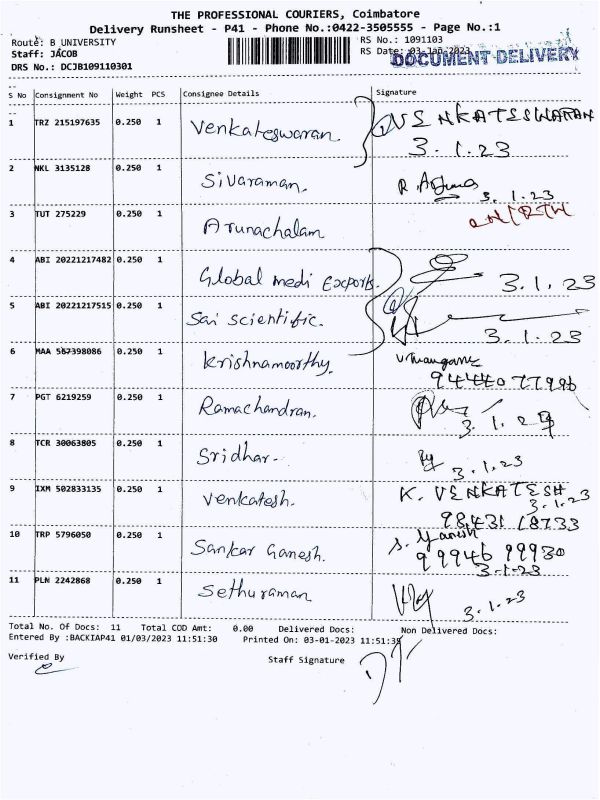 THE PROFESSIONAL COURIERS, Coimbatore
Delivery Runsheet - P41 - Phone No.:0422-3505555 - Page No.:1
Route: B UNIVERSITY
RS No.: 1091103
Staff: JACOB
RS Date: 03-Jan-2023
DOCUMENT DELIVERY
DRS No.: DCJB109110301
S No Consignment No Weight PCS Consignee Details Signature
1 TRZ 215197635 0.250 1 Venkateswaran VENKATESWARAN
3.1.23
2 NKL 3135128 0.250 1 Sivaraman. R. 3.1.23
3 TUT 275229 0.250 1 Arunachalam
4 ABI 20221217482 0.250 1 Global medi Exports. 3.1.23
5 ABI 20221217515 0.250 1 Sai scientific. 3.1.23
6 MAA 567398086 0.250 1 Krishnamoorthy.
94440 77996
7 PGT 6219259 0.250 1 Ramachandran. 3.1.
8 TCR 30063805 0.250 1 Sridhar. 3.1.23
9 IXM 502833135 0.250 1 Venkatesh. K. VENKATESH
3.1.23
98431 18733
10 TRP 5796050 0.250 1 Sankar Ganesh. S. Ganesh
99946 99930
3-1-23
11 PLN 2242868 0.250 1 Sethuraman 3.1.23
Total No. Of Docs: 11 Total COD Amt: 0.00 Delivered Docs: Non Delivered Docs:
Entered By :BACKIAP41 01/03/2023 11:51:30 Printed On: 03-01-2023 11:51:35
Verified By
Staff Signature